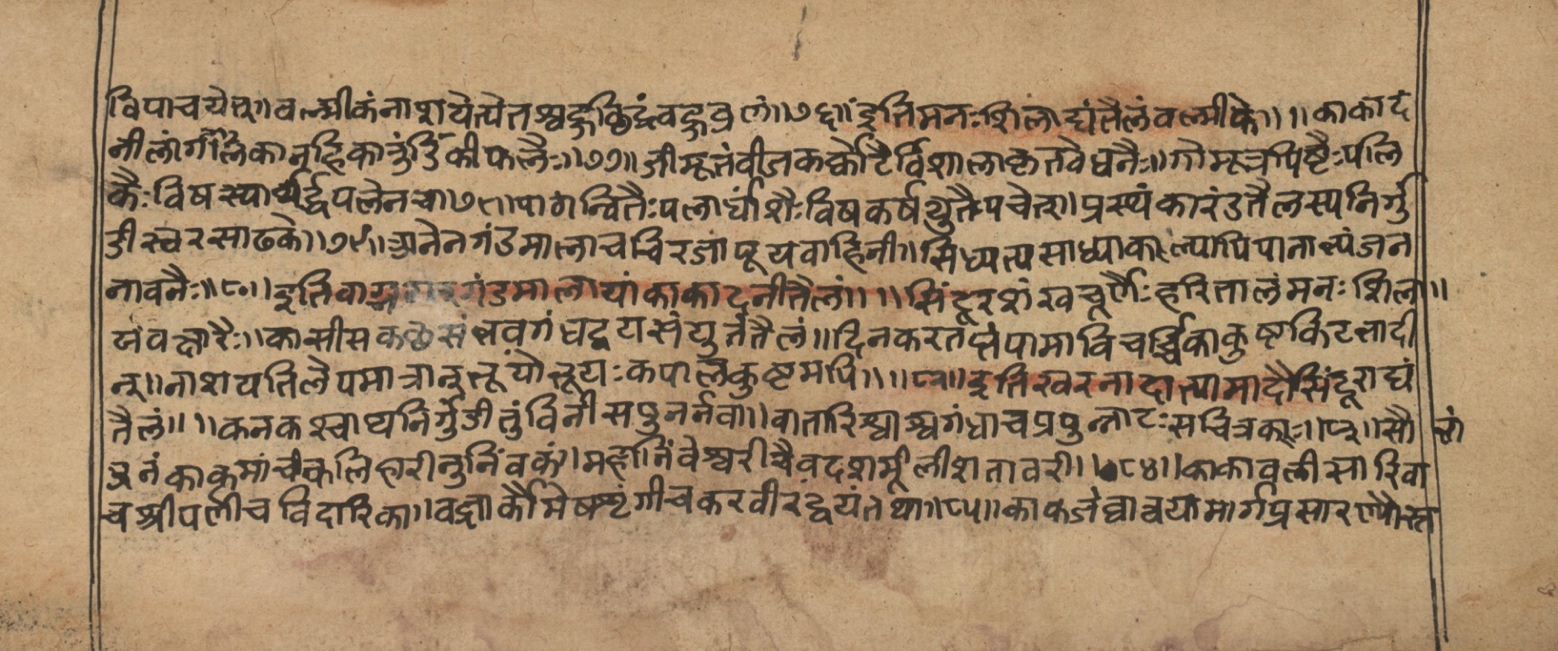 विपाचयेत्त॥वल्मीकंनाशयेत्येतश्वद्दुछिद्रंवद्दुव्रणं॥७६॥इतिमनःशिलाद्यंतैलंवल्मीके॥ ॥काकाद
नीलांगलिकानुहिकातुंडिकीफलैः॥७७॥जीमूतंवीजकर्कोटैर्विशालाकृतवेधनैः॥गोमूत्रपिष्टैःपलि
कैःविषस्यार्धपलेनच॥७८॥पाठान्वितैःपलार्धांशैःविषकर्षयुतैपचेत्त॥प्रस्थंकारंडतैलस्यनिर्गु
डीस्वरसाढके॥७९॥अनेनगंडमालाचचिरजापूयवाहिनी॥सिध्यत्यसाध्याकल्पापिपानात्यंजन
नावनैः॥८०॥इतिवा गंडमालायांकाकादनीतैलं॥ ॥सिंदूरशंखचूर्णैःहरितालंमनःशिला॥
यवक्षारैः॥कासीस गंधद्वयसंयुर्ततैलं॥दिनकरतप्तंपामाविचर्च्चिकाकुष्टकिटलादी
न्॥नाशयतिलेपमात्रान् कपालकुष्टमपि॥ ॥८२॥इतिखरनादात्पामादौसिंदूराद्यं
तैलं॥ ॥कनकश्वाथनिर्गुडीतुंविनीसपुनर्नवा॥वातारिश्वाश्वगंधाचप्रपुन्नाटःसचित्रकः॥८३॥सौभां
जनंकाकमाचंकलिहारीनुनिंवकं॥महानिंवेश्वरीचैवदशमूलीशतावरी॥८४॥काकावल्लीसारिवा
चश्रीपर्लीचविदारिका॥वज्राकौमेषशृंगीचकरवीरद्वयंतथा॥८५॥काकजंघाचयामार्गप्रसारण्योस्त